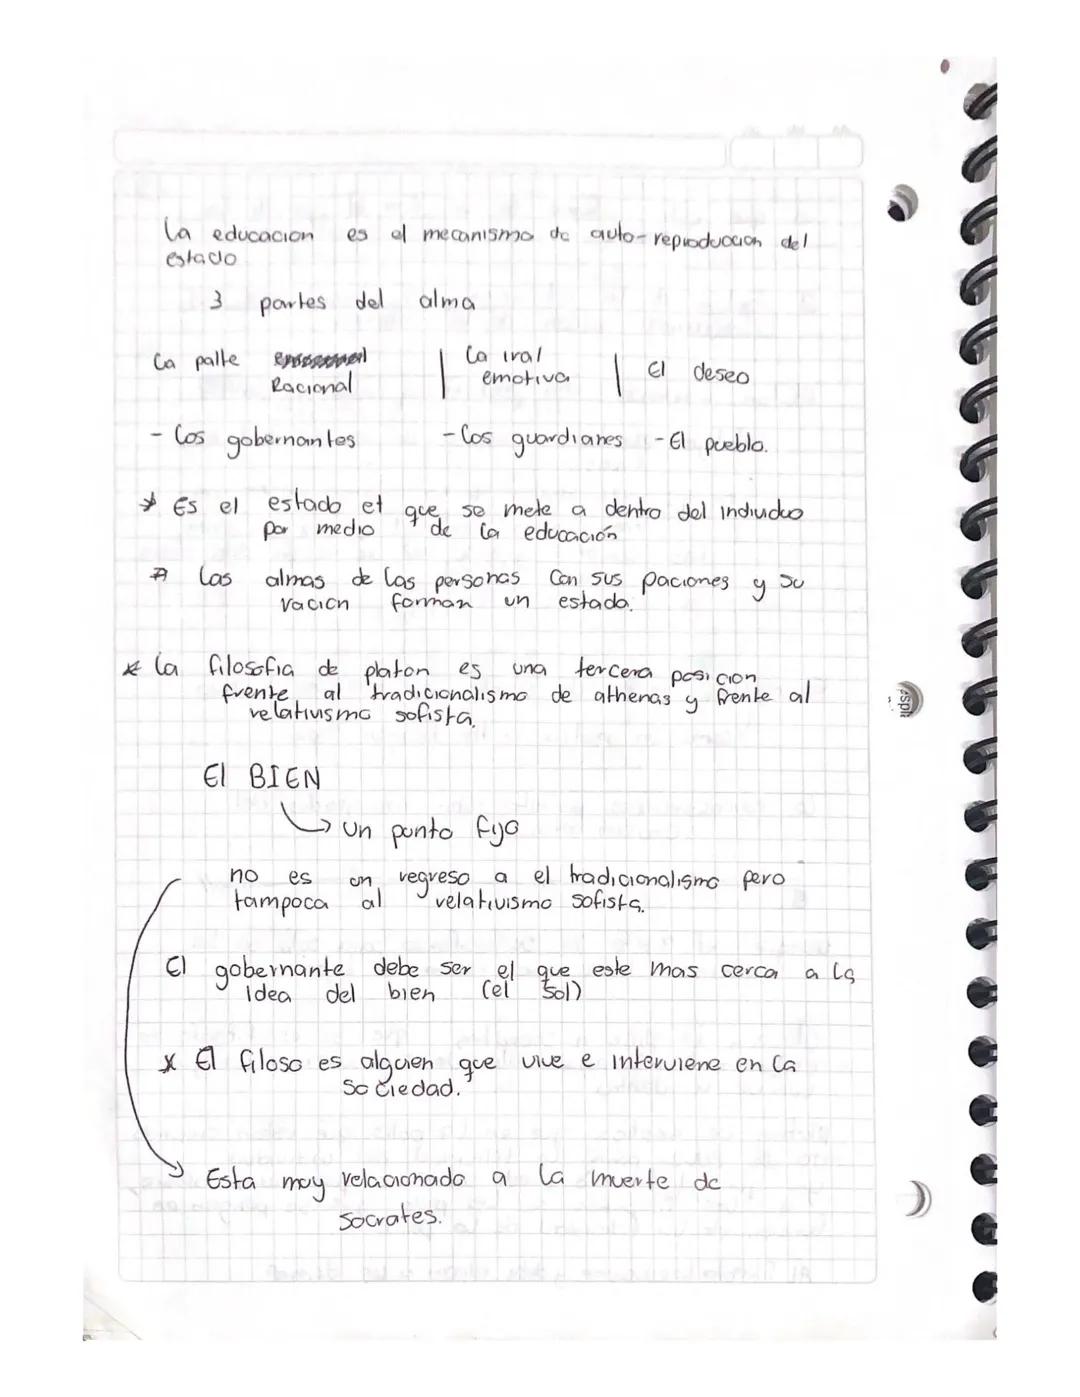 La educacion es el mecanismo de auto-reproduccion del
estado
3 partes del alma
La palte
Racional
La iral
emotiva
El deseo
- Los gobernantes
- Los guardianes
- El pueblo.
* Es el estado el que se mete a dentro del individuo
por medio de la educación
* Las almas de las personas con sus paciones y su
racion forman un estado.
* La filosofia de platon es una tercera posicion
frente al tradicionalismo de athenas y frente al
relativismo sofista.
El BIEN
→ un punto fijo
no es un regreso a el tradicionalismo pero
tampoca al relativismo sofista.
El gobernante debe ser el que este mas cerca a la
idea del bien (el sol)
* El filoso es alguien que vive e interviene en la
sociedad.
Esta muy relacionado a la muerte de
socrates.